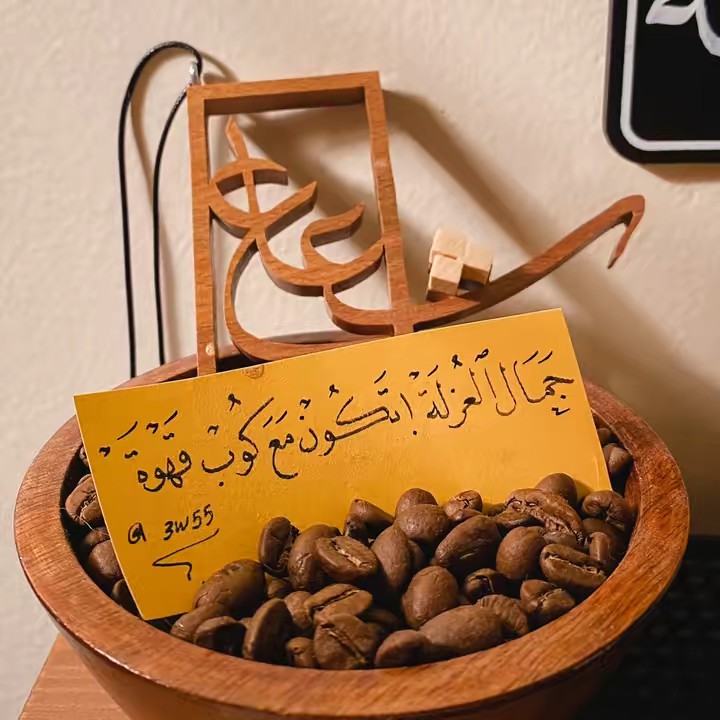 جَمَال الْعُزلَة اتَكُونْ مَعَ كُوبْ قَهْوَة
@ 3w55